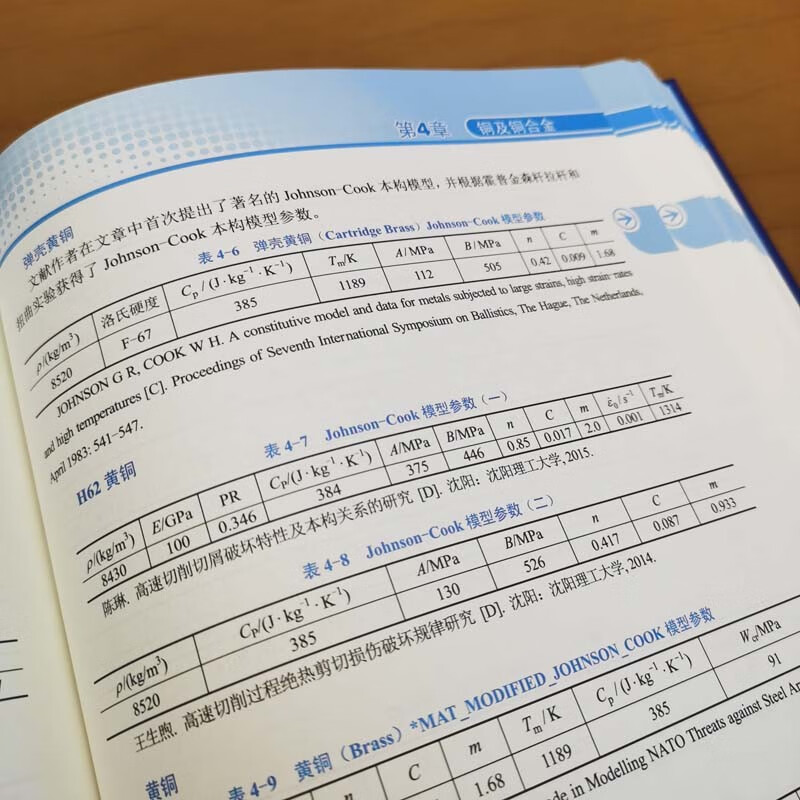 第4章 铜及铜合金
弹壳黄铜
文献作者在文章中首次提出了著名的 Johnson-Cook 本构模型，并根据霍普金森杆拉杆和
扭曲实验获得了 Johnson-Cook 本构模型参数。
表 4-6 弹壳黄铜（Cartridge Brass）Johnson-Cook 模型参数
ρ/(kg/m³) 洛氏硬度 Cp / (J·kg⁻¹·K⁻¹) Tm/K A/MPa B/MPa n C m
8520 F-67 385 1189 112 505 0.42 0.009 1.68
JOHNSON G R, COOK W H. A constitutive model and data for metals subjected to large strains, high strain rates
and high temperatures [C]. Proceedings of Seventh International Symposium on Ballistics, The Hague, The Netherlands,
April 1983: 541-547.
H62 黄铜
表 4-7 Johnson-Cook 模型参数（一）
ρ/(kg/m³) E/GPa PR Cp/(J·kg⁻¹·K⁻¹) A/MPa B/MPa n C m ε̇₀/s⁻¹ Tm/K
8430 100 0.346 384 375 446 0.85 0.017 2.0 0.001 1314
陈琳. 高速切削切屑破坏特性及本构关系的研究 [D]. 沈阳：沈阳理工大学, 2015.
表 4-8 Johnson-Cook 模型参数（二）
ρ/(kg/m³) Cp/(J·kg⁻¹·K⁻¹) A/MPa B/MPa n C m
8520 385 130 526 0.417 0.087 0.933
王生煦. 高速切削过程绝热剪切损伤破坏规律研究 [D]. 沈阳：沈阳理工大学, 2014.
黄铜
表 4-9 黄铜（Brass）*MAT_MODIFIED_JOHNSON_COOK 模型参数
n C m Tm/K Cp / (J·kg⁻¹·K⁻¹) Wcr/MPa
1.68 1189 385 91
in Modelling NATO Threats against Steel